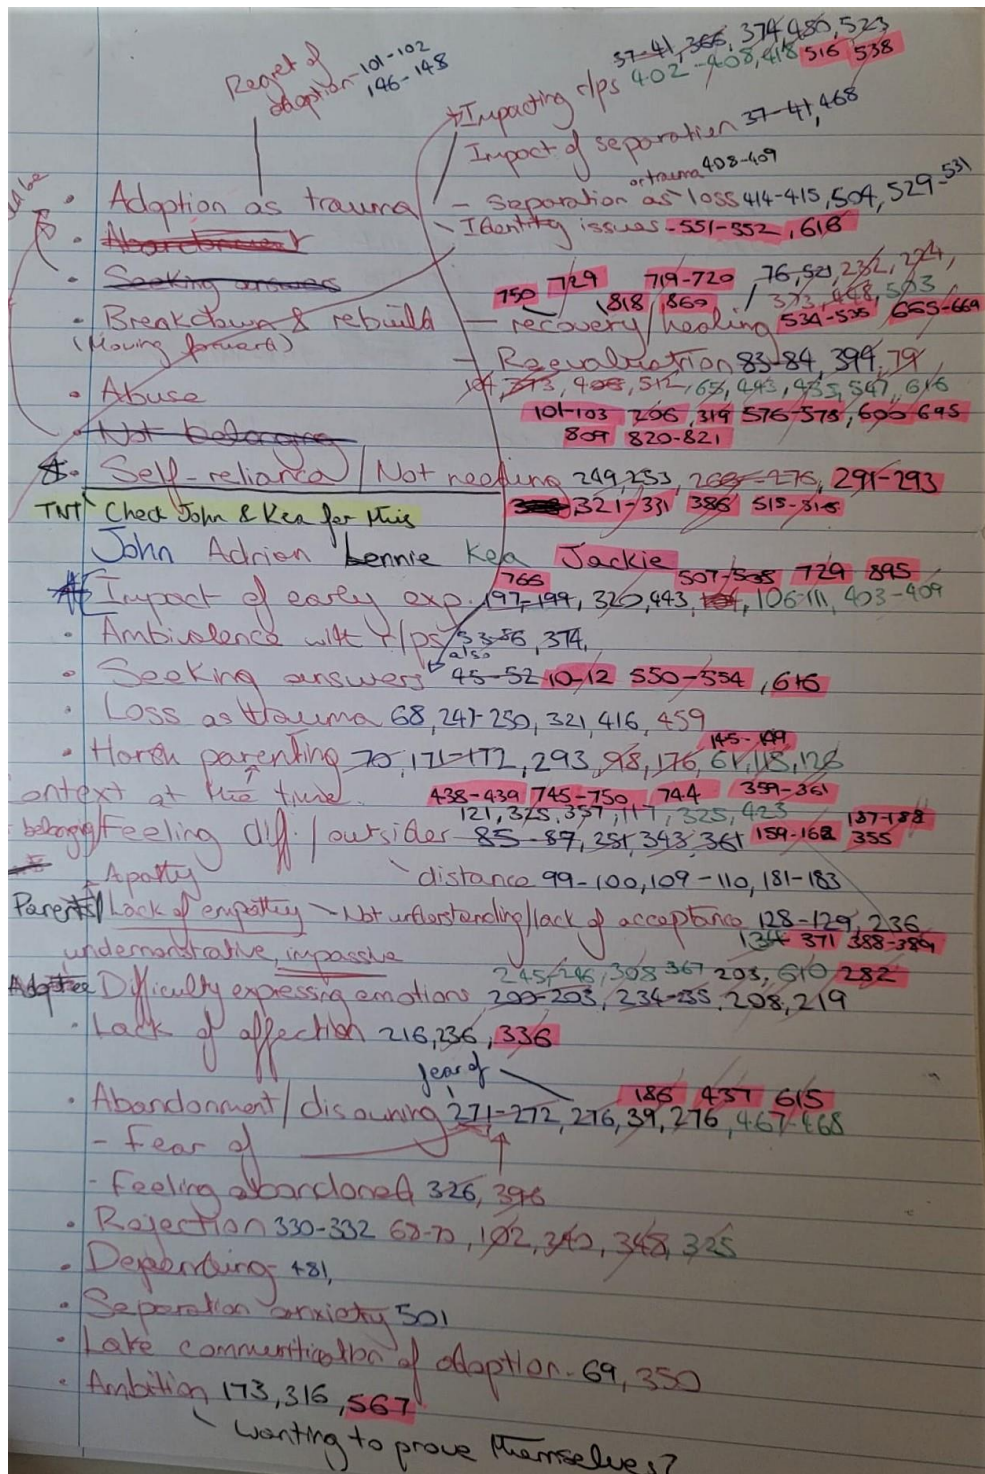 37-41, 366, 374, 480, 523
Regret of
adoption - 101-102
146-148
Impacting r/ps 402-408, 418 516 538
Impact of separation 37-41, 468
or trauma 408-409
Adoption as trauma - Separation as loss 414-415, 504, 529-531
Abandonment - Identity issues - 551-552, 618
Seeking answers 750 729 719-720 76, 521, 232, 224,
818 860 373, 448, 503
Breakdown & rebuild - recovery/healing 534-535 665-669
(Moving forward) - Reevaluation 83-84, 399, 79
Abuse 104, 373, 408, 512, 65, 443, 455, 547, 616
101-103 206, 319 576-578, 600 695
Not belonging 809 820-821
Self-reliance / Not needing 249, 253, 268-276, 291-293
TNT Check John & Kea for this 321-331 386 515-516
John Adrian Lennie Kea Jackie
766 507-508 729 895
Impact of early exp. 197-199, 320, 443, 106-111, 403-409
Ambivalence with r/ps 53-56, 374,
also
Seeking answers 45-52 10-12 550-554, 616
Loss as trauma 68, 247-250, 321, 416, 459
145-149
Harsh parenting 70, 171-172, 293, 98, 176, 61, 118, 128
ontext at the time. 438-439 745-750, 744 359-361
121, 325, 337, 117, 325, 423 187-188
belonging/Feeling diff. / outsider - 85-87, 251, 343, 361 159-162 355
- Apathy distance 99-100, 109-110, 181-183
Parents/ Lack of empathy - Not understanding/lack of acceptance 128-129, 236
undemonstrative, impassive 134 371 388-389
245, 246, 308 367 203, 610 282
Adoptee Difficulty expressing emotions 200-203, 234-235, 208, 219
Lack of affection 216, 236, 336
fear of
186 437 615
Abandonment / disowning 271-272, 276, 39, 276, 467-468
- Fear of
- Feeling abandoned 326, 396
Rejection 330-332 68-70, 102, 340, 348, 325
Depending - 481,
Separation anxiety 501
Late communication of adoption - 69, 350
Ambition 173, 316, 567
wanting to prove themselves?